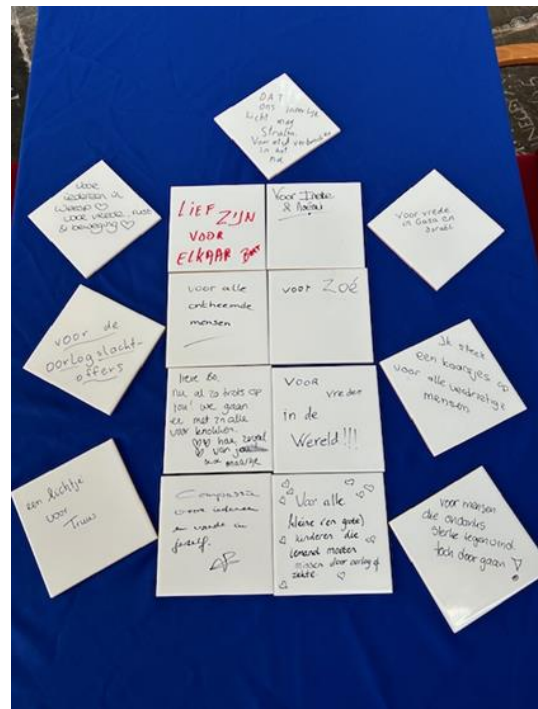 DAT
ons
Licht mag
Stralen
Voor altijd verbonden
in het
nu
voor
iedereen in
♡
voor vrede, rust
& beweging ♡
LIEF ZIJN
VOOR
ELKAAR
Voor Ineke
&
Voor vrede
in Gaza en
Israël
voor alle
ontheemde
mensen
voor Zoé
voor de
oorlogslacht-
offers
Ik steek
een kaarsjes op
voor alle verdrietige
mensen
lieve Bo,
nu al zo trots op
jou! we gaan
er met z'n alle
voor knokken.
♡♡
van
maatje
VOOR
vrede
in de
Wereld!!!
een lichtje
voor
Truus
Compassie
voor iedereen
en vrede in
jezelf.
Voor alle
kleine (en grote)
kinderen die
iemand moeten
missen door oorlog of
ziekte
voor mensen
die ondanks
sterke tegenwind
toch doorgaan!